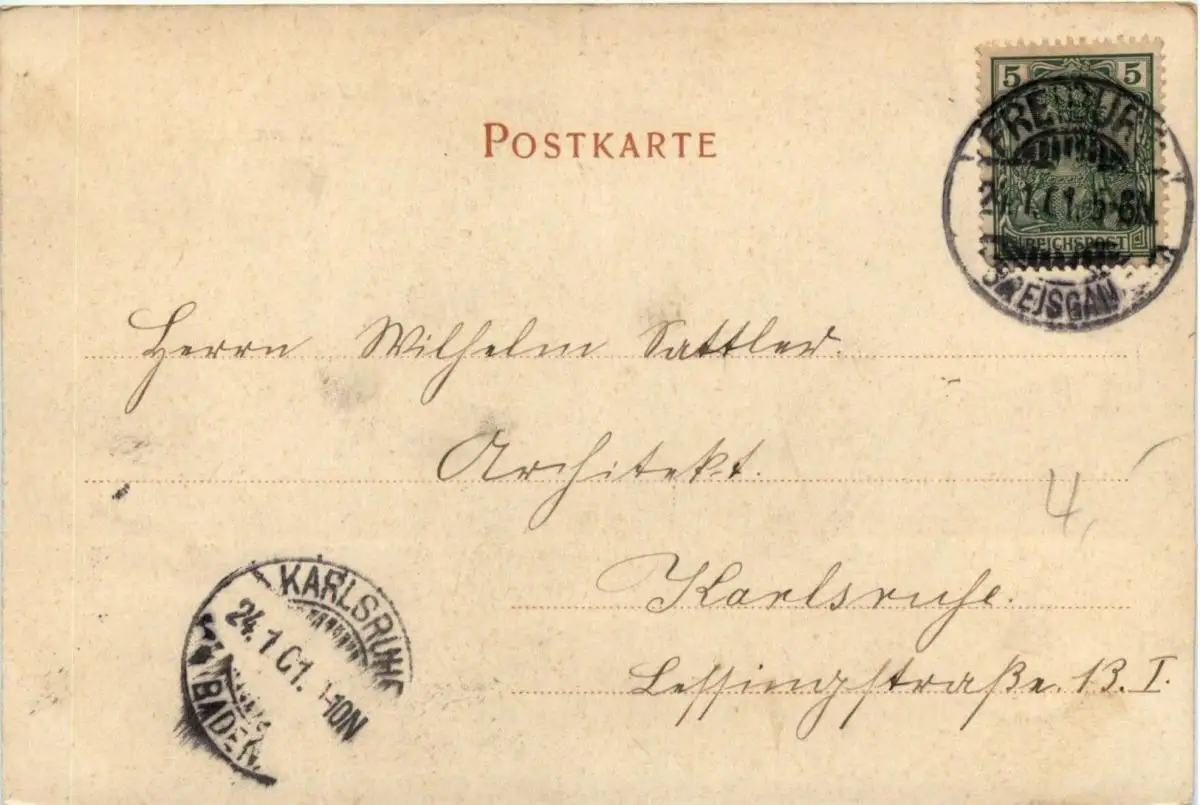 POSTKARTE
5 5
REICHSPOST
24.1.01. 5-6N.
Herrn Wilhelm Sattler.
Architekt.
4,
Karlsruhe.
Lessingstraße. 13. I.
KARLSRUHE
24.1.01.
BADEN.